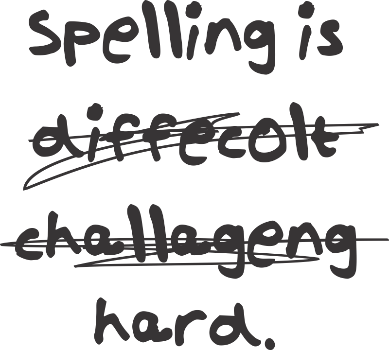 Spelling is
diffecolt
challageng
hard.